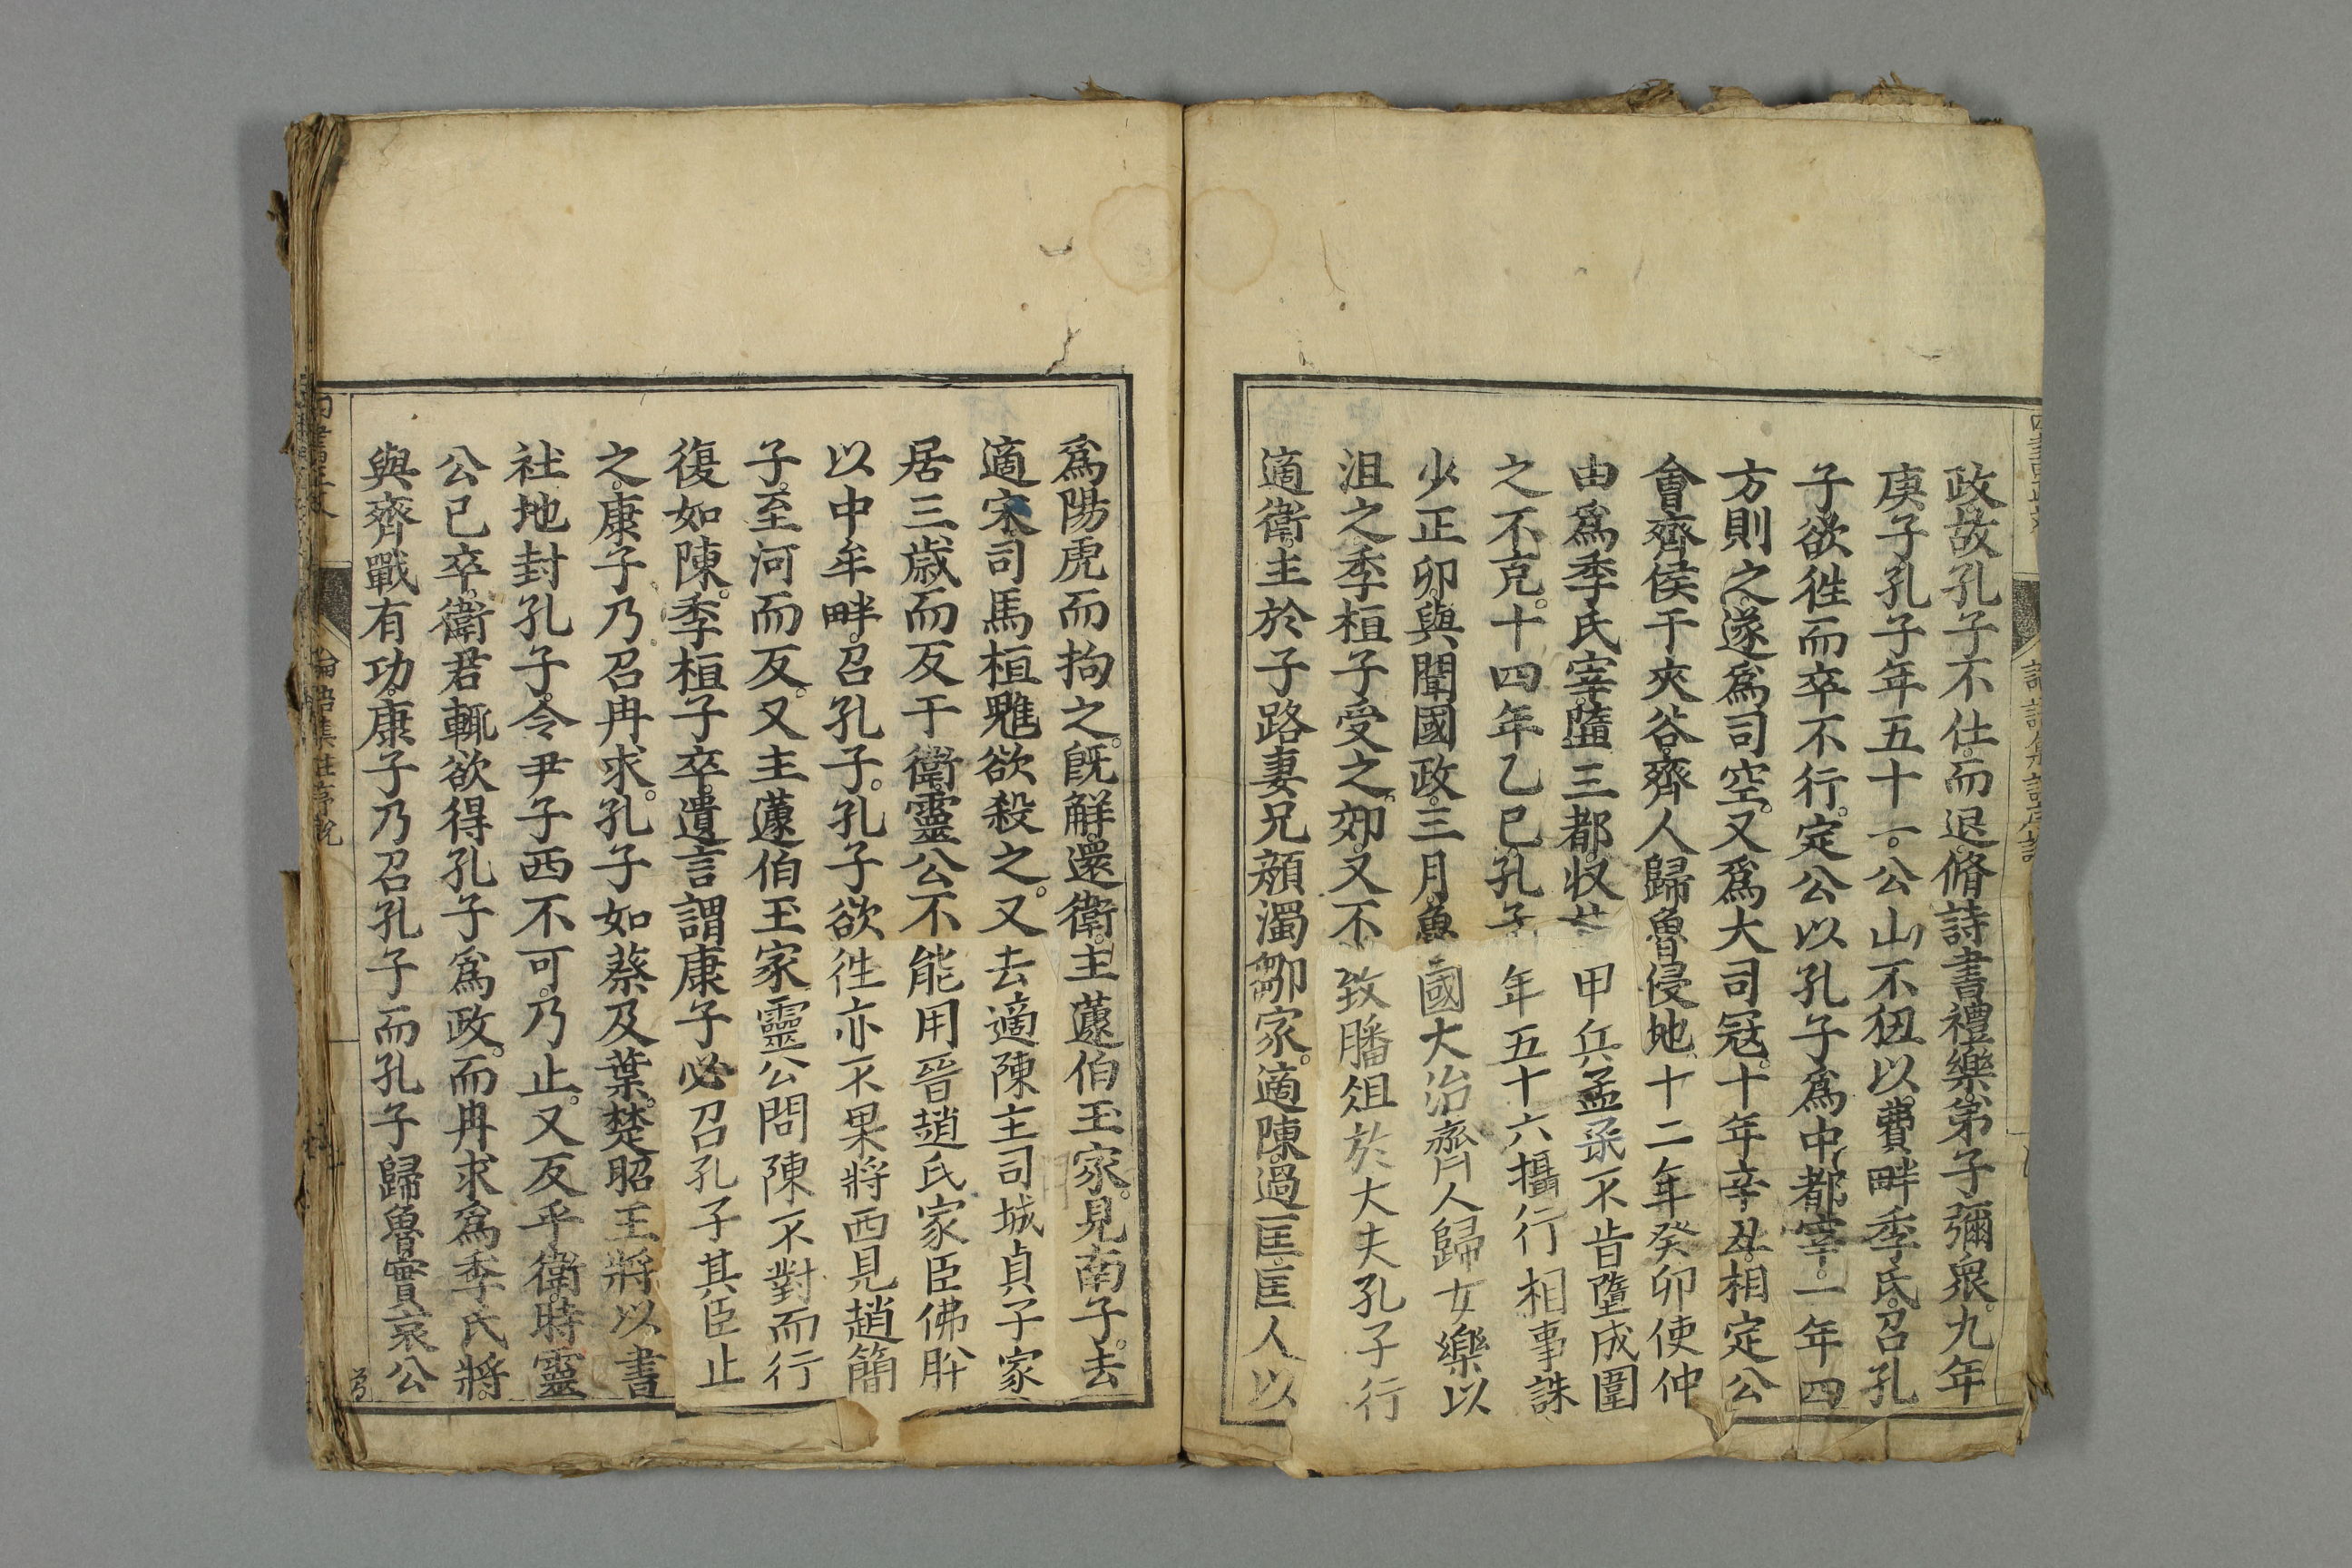 政故孔子不仕而退脩詩書禮樂弟子彌衆九年
庚子孔子年五十一公山不狃以費畔季氏召孔
子欲徃而卒不行定公以孔子爲中都宰一年四
方則之遂爲司空又爲大司冦十年辛丑相定公
會齊侯于夾谷齊人歸魯侵地十二年癸卯使仲
由爲季氏宰墮三都收甲兵孟氏不肯墮成圍
之不克十四年乙巳孔子年五十六攝行相事誅
少正卯與聞國政三月魯國大治齊人歸女樂以
沮之季桓子受之郊又不致膰俎於大夫孔子行
適衛主於子路妻兄顔濁鄒家適陳過匡匡人以
爲陽虎而拘之旣解還衛主蘧伯玉家見南子去
適宋司馬桓魋欲殺之又去適陳主司城貞子家
居三歲而反于衛靈公不能用晉趙氏家臣佛肸
以中牟畔召孔子孔子欲徃亦不果將西見趙簡
子至河而反又主蘧伯玉家靈公問陳不對而行
復如陳季桓子卒遺言謂康子必召孔子其臣止
之康子乃召冉求孔子如蔡及葉楚昭王將以書
社地封孔子令尹子西不可乃止又反乎衛時靈
公已卒衛君輒欲得孔子爲政而冉求爲季氏將
與齊戰有功康子乃召孔子而孔子歸魯實哀公
論語集註序說